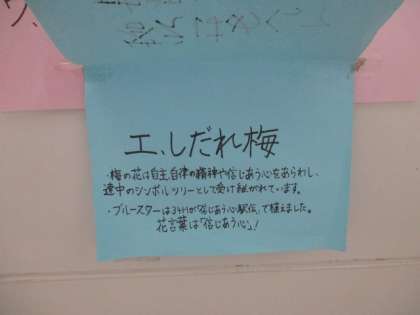 エ、しだれ梅
・梅の花は自主、自律の精神や信じあう心をあらわし、
達中のシンボルツリーとして受け継がれています。
・ブルースターは3年が「信じあう心駅伝」で植えました。
花言葉は「信じあう心」!